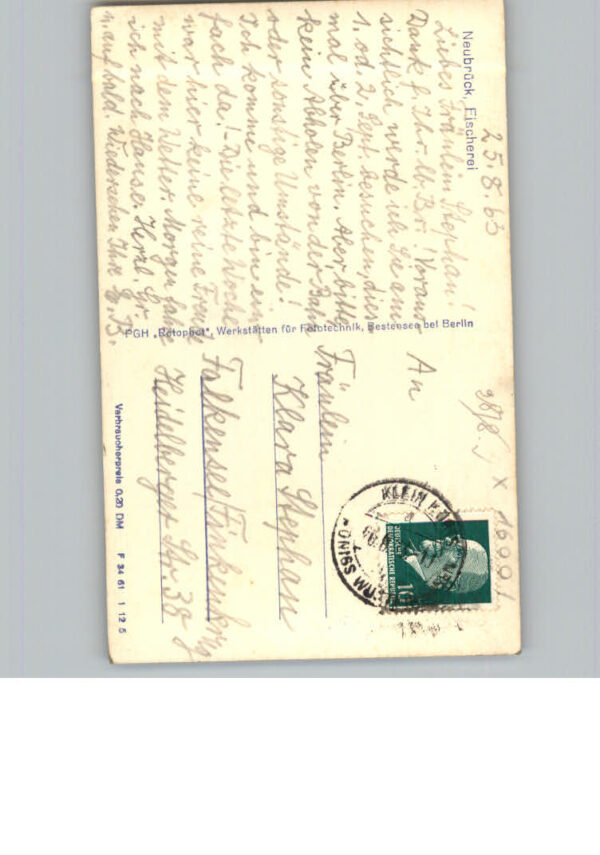 Neubrück, Fischerei
25.8.63
Liebes Fräulein Stephan!
Dank f. Ihr. lb. Br.! Voraus-
sichtlich werde ich Sie am
1. od. 2. Sept. besuchen, dies-
mal über Berlin. Aber bitte
kein Abholen von der Bahn
oder sonstige Umstände!
Ich komme und bin ein-
fach da! – Die letzte Woche
war hier keine reine Freude
mit dem Wetter. Morgen fahre
ich nach Hause. Herzl. Gr.
u. auf bald. Wiedersehen Ihre E. B.
PGH „Rotophot", Werkstätten für Fototechnik, Bestensee bei Berlin
28/8.
An
Fräulein
Klara Stephan
Falkensee/Finkenkrug
Heidelberger Str. 38
X 16001
KLEIN KÖNIGS WUST
DEUTSCHE
DEMOKRATISCHE REPUBLIK
10
Verbraucherpreis 0,20 DM F 34 61 1 12 5